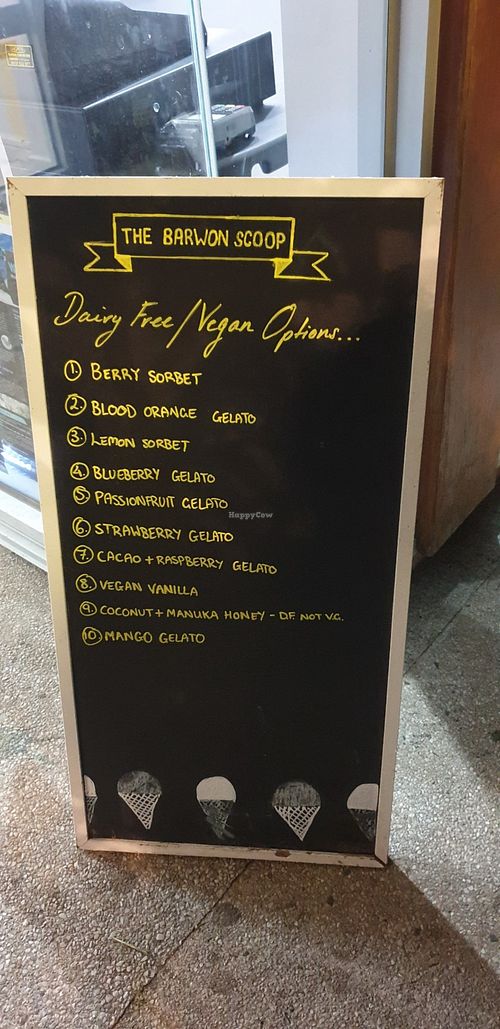 THE BARWON SCOOP
Dairy Free/Vegan Options...
1. BERRY SORBET
2. BLOOD ORANGE GELATO
3. LEMON SORBET
4. BLUEBERRY GELATO
5. PASSIONFRUIT GELATO
HappyCow
6. STRAWBERRY GELATO
7. CACAO + RASPBERRY GELATO
8. VEGAN VANILLA
9. COCONUT + MANUKA HONEY - D.F. NOT V.G.
10 MANGO GELATO